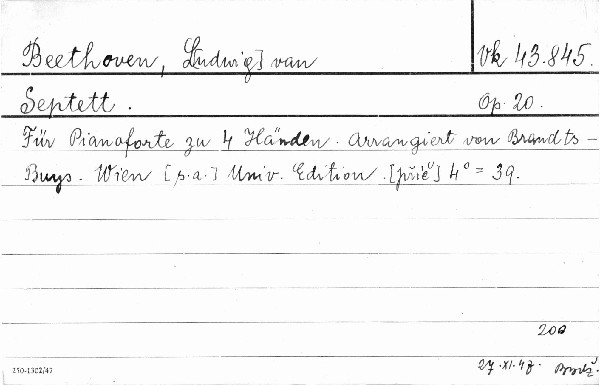 Beethoven, L[udwig] van Vk 43.845.
Septett. Op. 20.
Für Pianoforte zu 4 Händen. Arrangiert von Brandts-
Buys. Wien [s.a.] Univ. Edition. 4° = 39.
200
250-1302/47
27.XI.47.